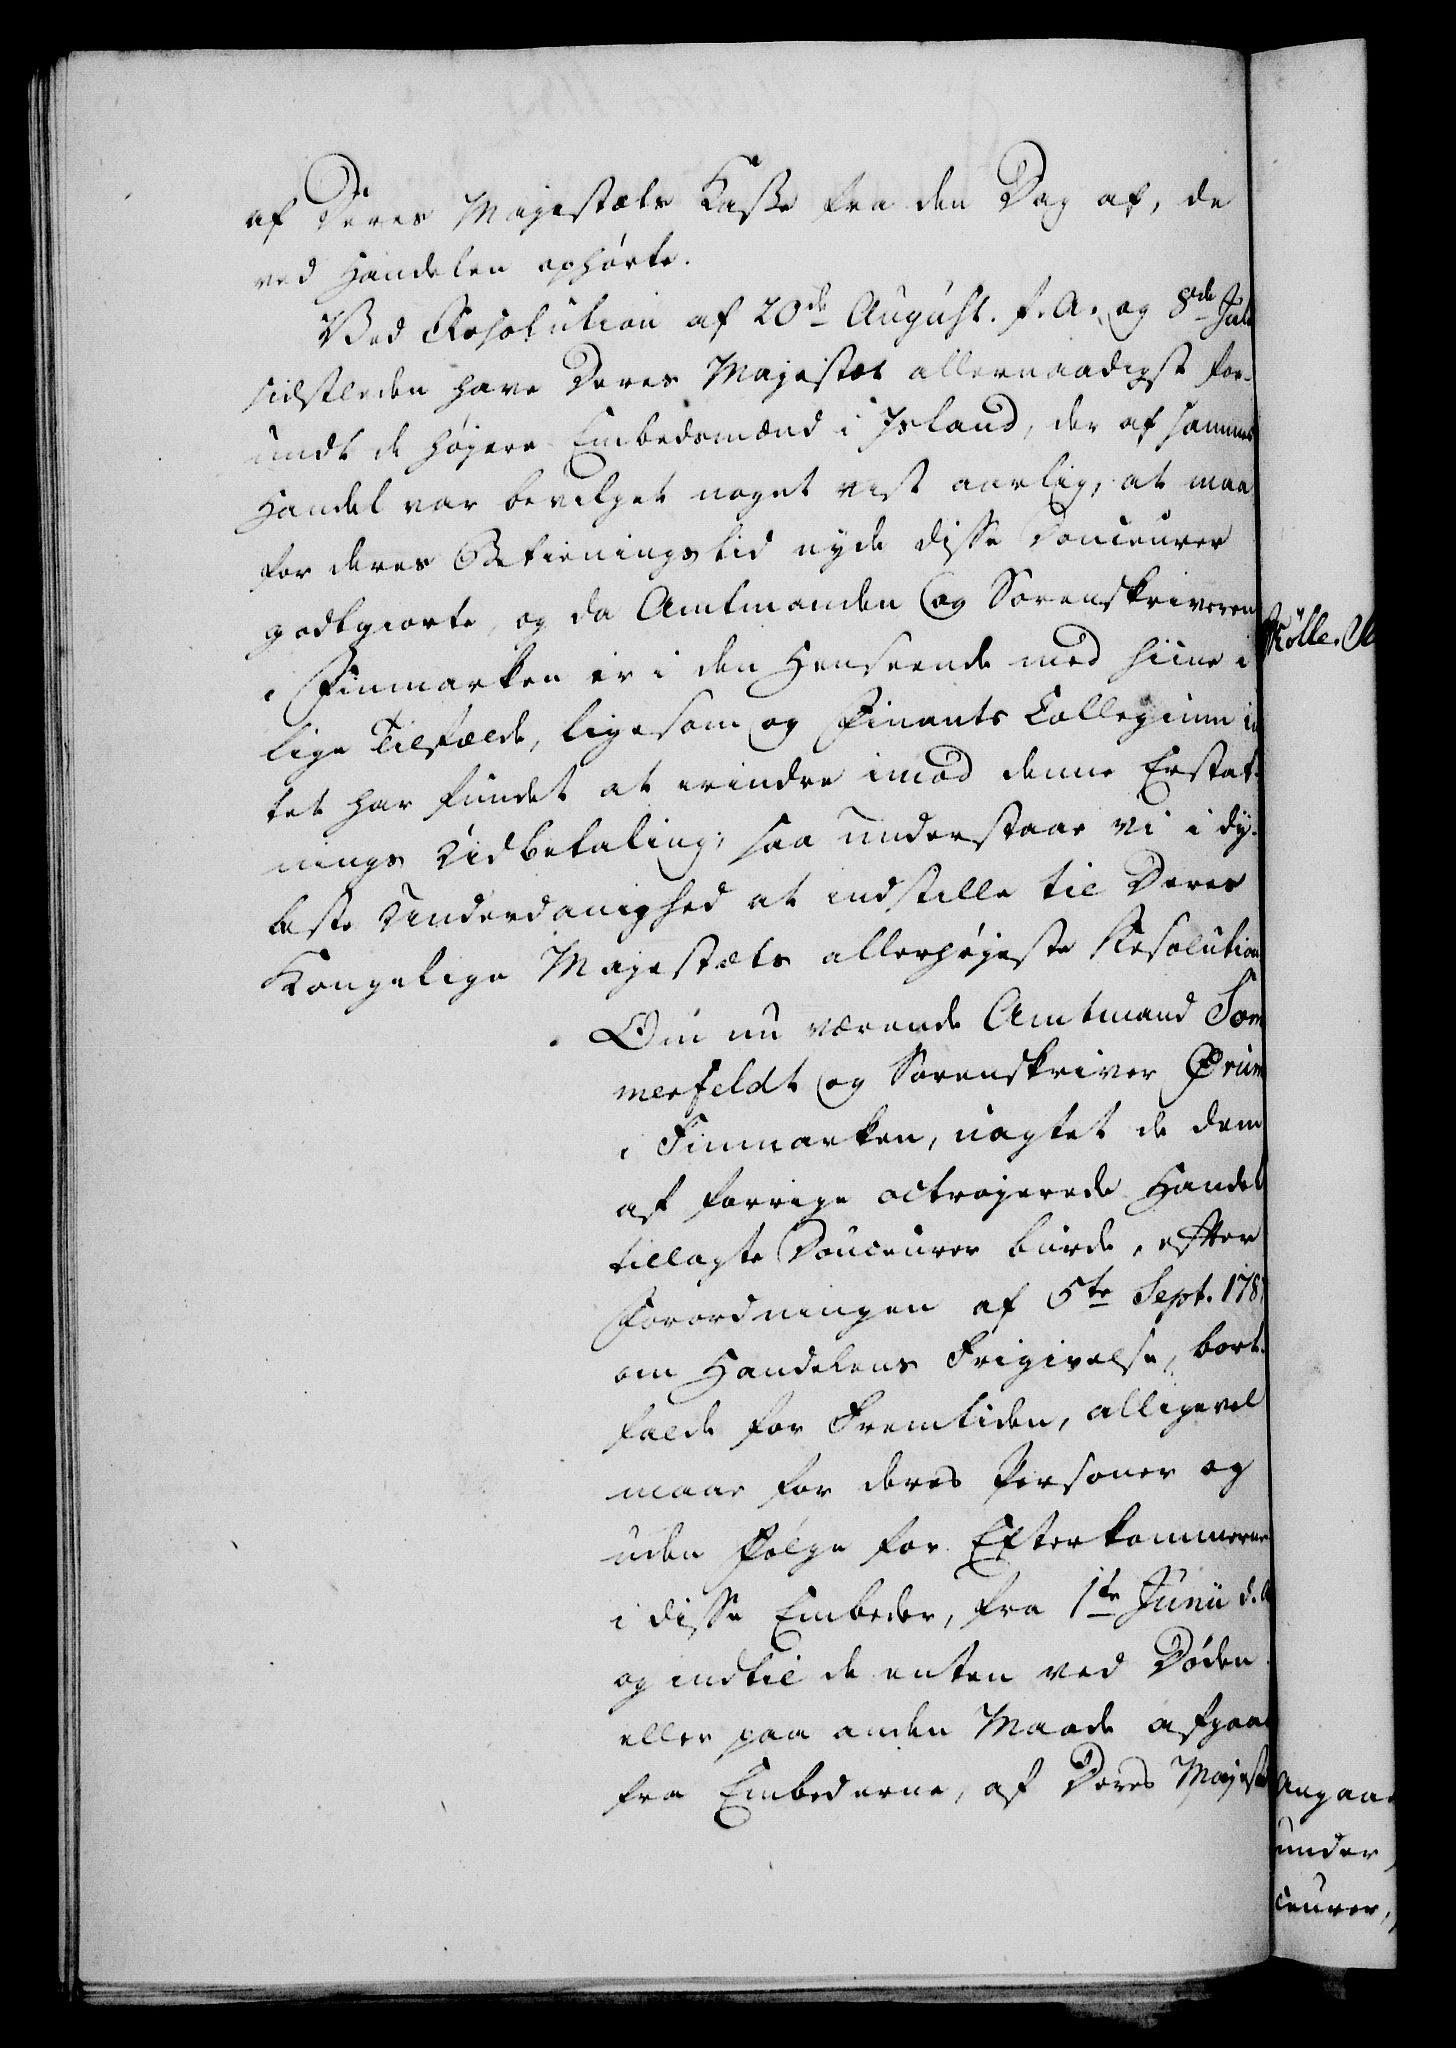 af Deres Majestæts Kasse fra den Dag af, de
ved Handelen ophørte.
Ved Resolution af 20de August f. A. og 8de Julii
sidstleden have Deres Majestæt allernaadigst for-
undt de højere Embedsmænd i Island, der af samme
Handel var bevilget noget vist aarlig, at maa
for deres Betieningstid nyde disse Douceurer
godtgiorte, og da Amtmanden og Sorenskriveren
i Finmarken er i den Henseende med hiine i
lige Tilfælde, ligesom og Finants Collegium in-
tet har fundet at erindre imod denne Erstat-
nings Udbetaling; saa understaae vi i dy-
beste Underdanighed at indstille til Deres
Kongelige Majestæts allerhøjeste Resolution
Om nu værende Amtmand Som-
merfeldt og Sorenskriver Ørum
i Finmarken, uagtet de dem
af forrige octrojerede Handel
tillagte Douceurer burde, efter
Forordningen af 5te Sept. 178
om Handelens Frigivelse, bort-
falde for Fremtiden, alligevel
maae for deres Personer og
uden Følge for Efterkommerne
i disse Embeder, fra 1te Junii d. A
og indtil de enten ved Døden
eller paa anden Maade afgaae
fra Embederne, af Deres Majestæ
Angaae
under
ceurer,